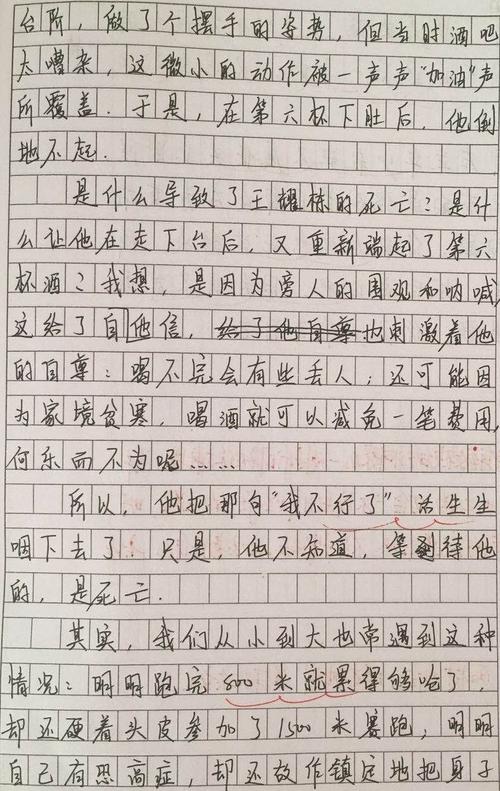 台阶，做了个摆手的姿势，但当时酒吧
太嘈杂，这微小的动作被一声声“加油”声
所覆盖．于是，在第六杯下肚后．他倒
地不起．
是什么导致了王耀栋的死亡？是什
么让他在走下台后，又重新端起了第六
杯酒？我想，是因为旁人的围观和呐喊，
这给了自他信，给了他自尊也刺激着他
的自尊：喝不完会有些丢人；还可能因
为家境贫寒，喝酒就可以减免一笔费用，
何乐而不为呢……
所以，他把那句“我不行了”活生生
咽下去了．只是，他不知道，等到待他
的，是死亡．
其实，我们从小到大也常遇到这种
情况：明明跑完800米就累得够呛了，
却还硬着头皮参加了1500米赛跑，明明
自己有恐高症，却还故作镇定地把身子